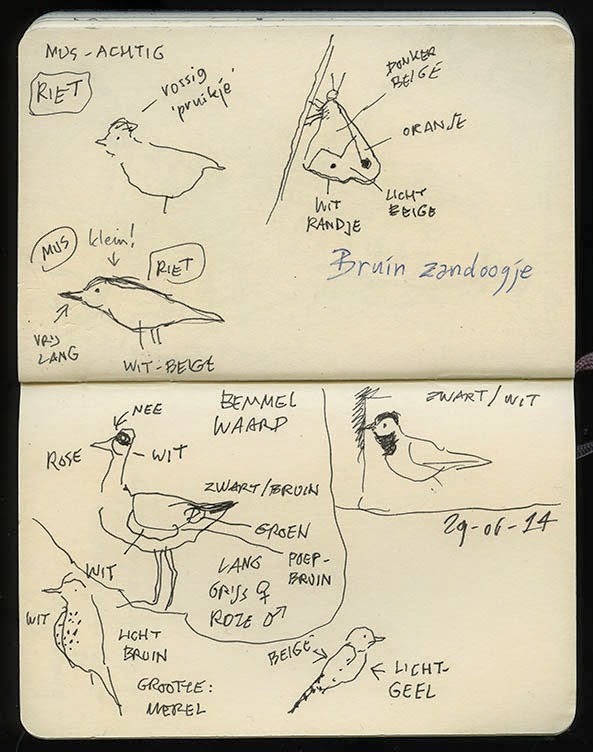 MUS-ACHTIG
RIET
rossig
'pruikje'
DONKER
BEIGE
ORANJE
WIT
RANDJE
LICHT
BEIGE
Bruin zandoogje
MUS
klein!
RIET
VRIJ
LANG
WIT-BEIGE
NEE
ROSE
WIT
BEMMEL
WAARD
ZWART/BRUIN
GROEN
POEP-
BRUIN
WIT
LANG
GRIJS ♀
ROZE ♂
ZWART/WIT
29-06-14
WIT
LICHT
BRUIN
GROOTTE:
MEREL
BEIGE
LICHT-
GEEL